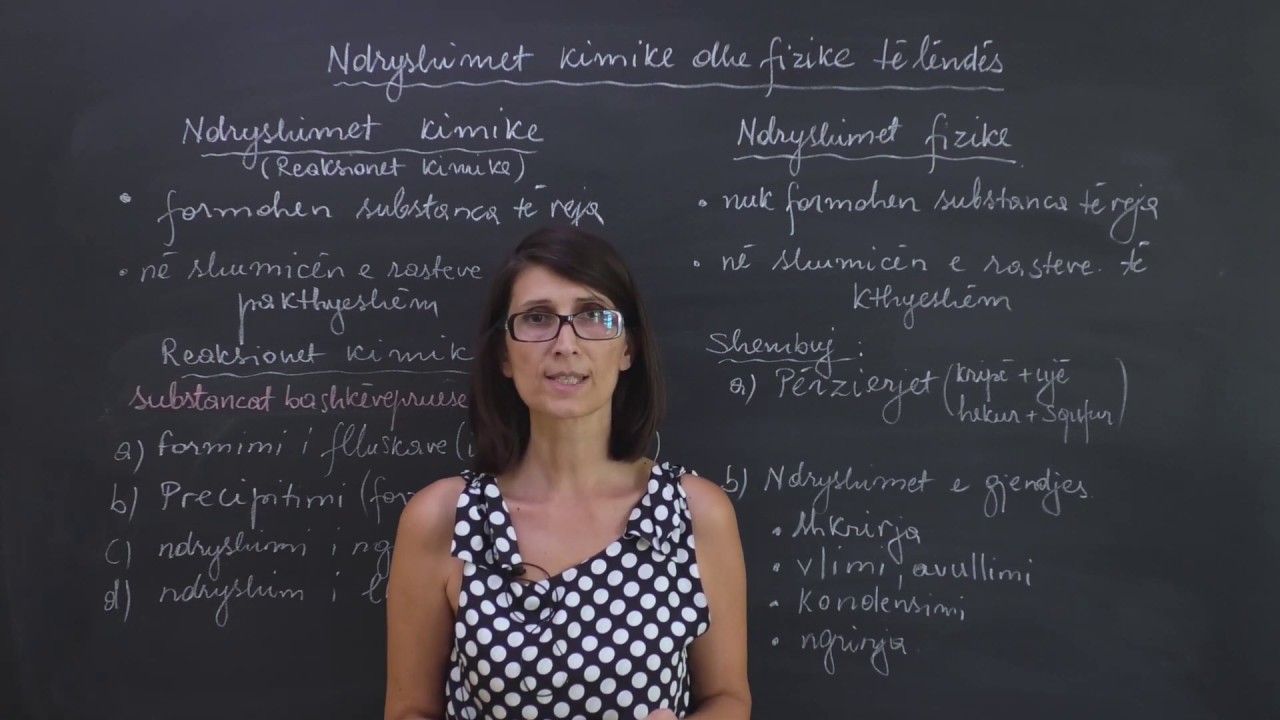 Ndryshimet kimike dhe fizike të lëndës
Ndryshimet kimike
(Reaksionet kimike)
• formohen substanca të reja
• në shumicën e rasteve
pakthyeshëm
Reaksionet kimik
substancat bashkëvepruese
a) formimi i flluskave (
b) Precipitimi (for
c) ndryshimi i ng
d) ndryshim i
Ndryshimet fizike
• nuk formohen substanca të reja
• në shumicën e rasteve të
kthyeshëm
Shembuj:
a) Përzierjet (kripë + ujë
hekur + squfur)
b) Ndryshimet e gjendjes
• shkrirja
• vlimi, avullimi
• Kondensimi
• ngrirja